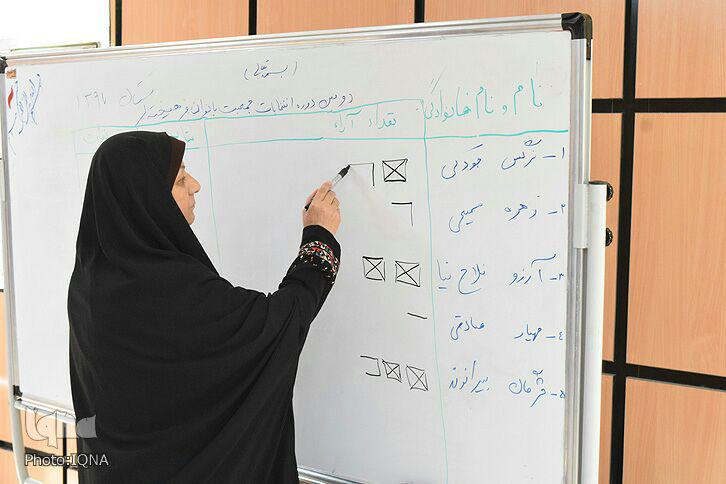 (بسمه تعالی)
دومین دوره انتخابات جمعیت بانوان فرهیخته استان ۱۳۹۷
نام و نام خانوادگی
تعداد آراء
۱- نرگس جودکی
۲- زهره سمیعی
۳- آرزو فلاح نیا
۴- مهیار صادقی
۵- قرمان بیرانوند
iqna
Photo:IQNA